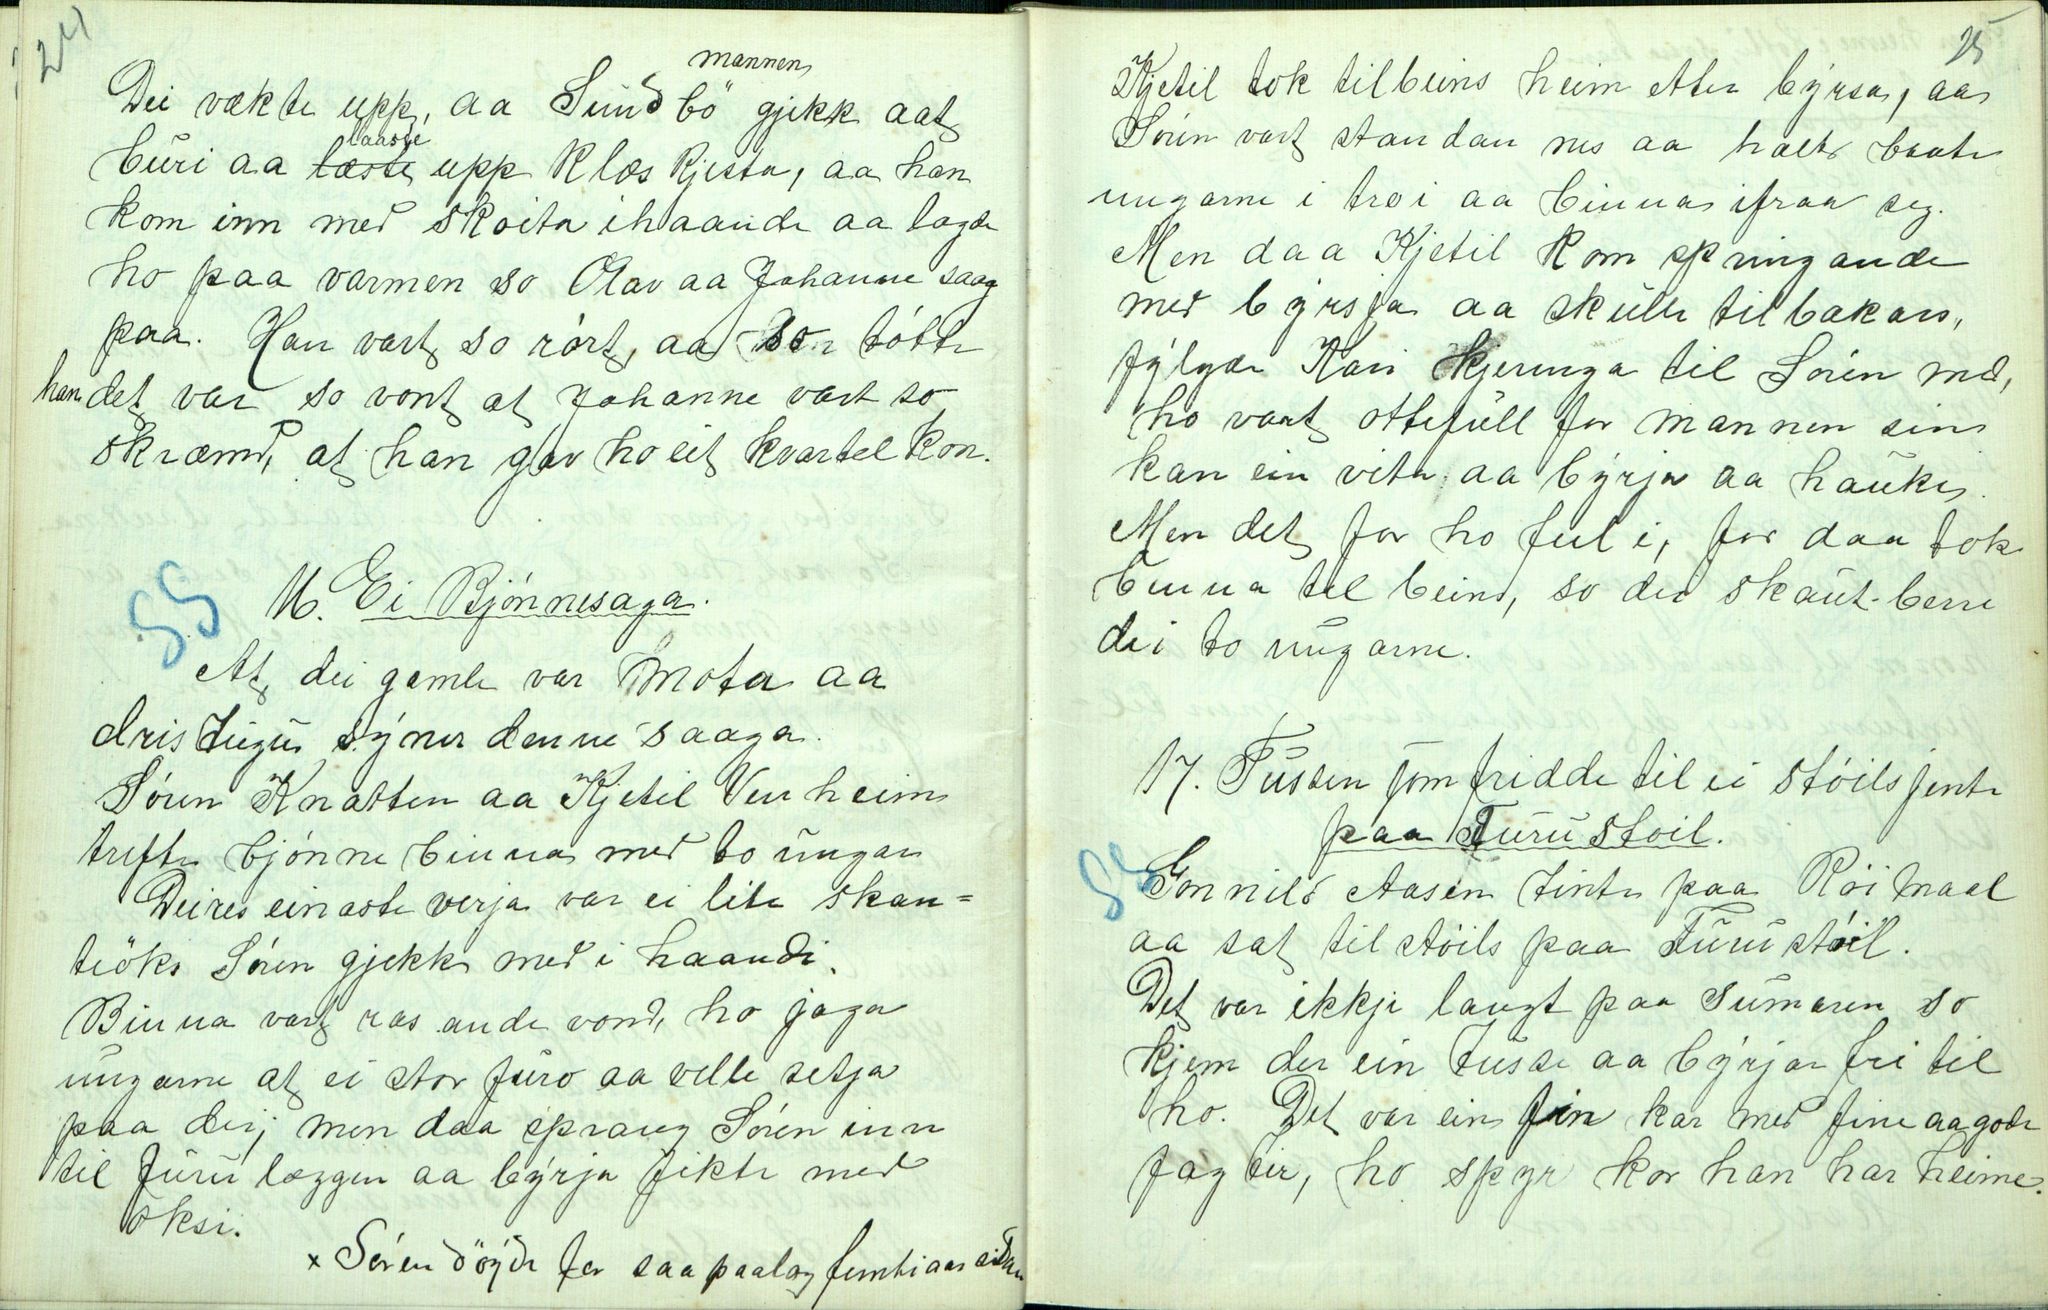 24
mannen
Dei vækte upp, aa Sundbö gjekk aat
laaste
buri aa læste upp Klæskjesta, aa han
kom inn med skoita ihaande aa lagde
ho paa varmen so Olav aa Johanne saag
paa. Han vart so rört, aa so tötte
han det var so vont at Johanne vart so
skræmd, at han gav ho eit kvartel kon.
SS
16. Ei Bjönnesaga.
At dei gamle var mota aa
dristugu syner denne saaga.
Sören Knatten aa Kjetil Venheim
trefte bjönnebinna med to ungar
Deires einaste verja var ei lita skan=
tiöks Sören gjekk med i haandi.
Binna vart rasande vond, ho jaga
ungarne at ei stor furo aa ville setja
paa dei; men daa sprang Sören inn
til furulæggen aa byrja fikte med
öksi.
x Sören döyde for saa paalag femti aar sidan
25
Kjetil tok tilbeins heim etter byrsa, aa
Sören vart standan nes aa halde baate
ungarne i troi aa binna ifraa seg.
Men daa Kjetil kom springande
med byrsja aa skulle tilbakars,
fylgde Kari kjeringa til Sören med,
ho vart ottefull for mannen sin
kan ein vita, aa byrja aa hauke.
Men det for ho feil i, for daa tok
binna til beins, so dei skaut berre
dei to ungarne.
17. Tussen jomfridde til ei stöilsjente
paa Furustöil.
SS
Gonnild Aasen tinte paa Röimaal
aa sat til stöils paa Furustöil.
Det var ikkje langt paa sumaren so
kjem der ein tusse aa byrjar fri til
ho. Det var ein fin kar med fine aa gode
fagtir, ho spyr kor han har heime.